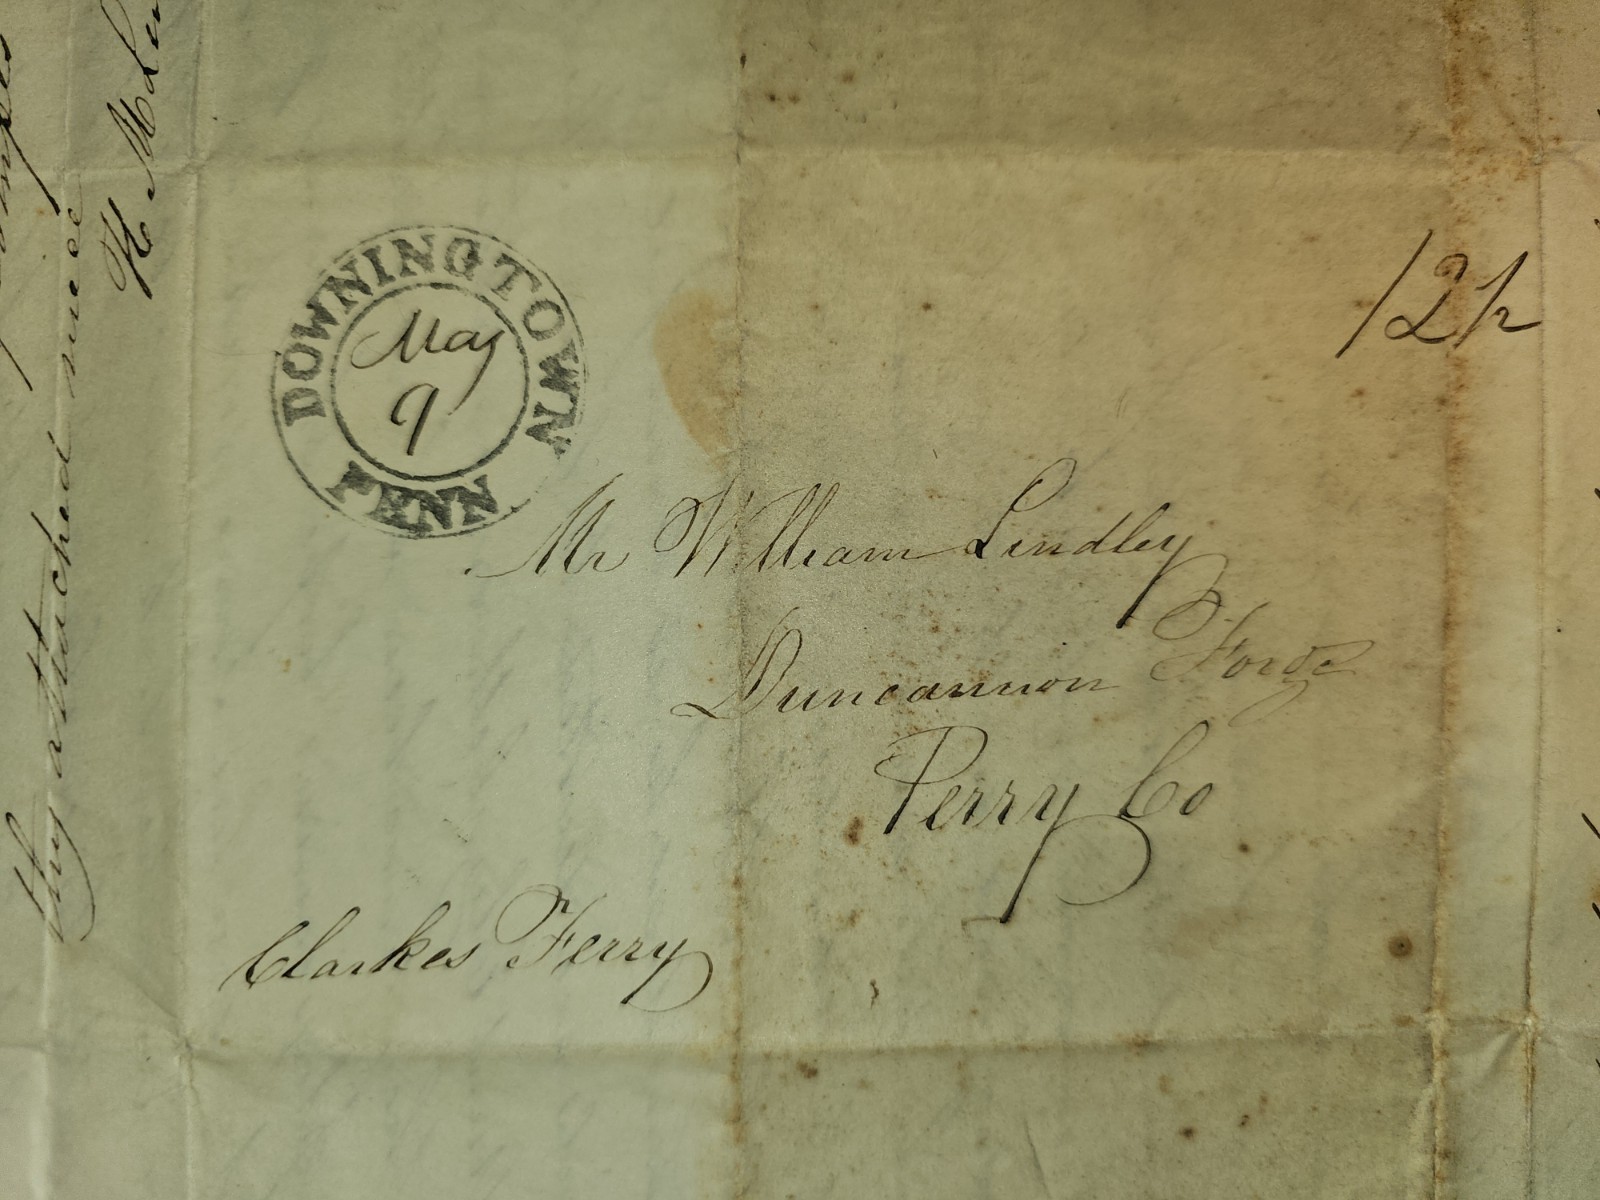 DOWNINGTOWN
PENN
May
9
12½
Mr William Lindley
Duncannon Forge
Perry Co
Clarkes Ferry
thy attached niece
H M Lin